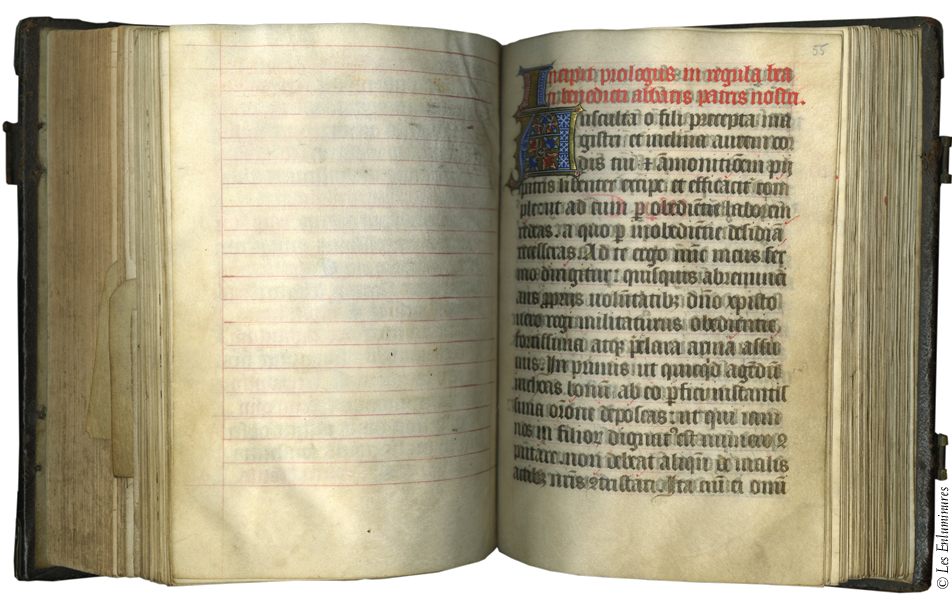 55
Incipit prologus in regula bea
ti benedicti abbatis patris nostri.
Ausculta o fili precepta ma
gistri et inclina aurem cor
dis tui & amonitionem pii
patris libenter excipe et efficacit com
ple ut ad eum p obedientie laborem
redeas a quo p inobedientie desidia
recesseras. Ad te ergo nunc meus ser
mo dirigitur quisquis abrenunci
ans propriis voluntatibz dno xpisto
vero regi militaturus obedientie
fortissima atq3 pclara arma assu
mis. In primis ut quicqd agendu
inchoas bonum ab eo pfici instantis
sima orone deposcas ut qui iam
nos in filior dignat est numero
putare non debeat aliqn de malis
actibz nris Ita cum ei omi
© Les Enluminures